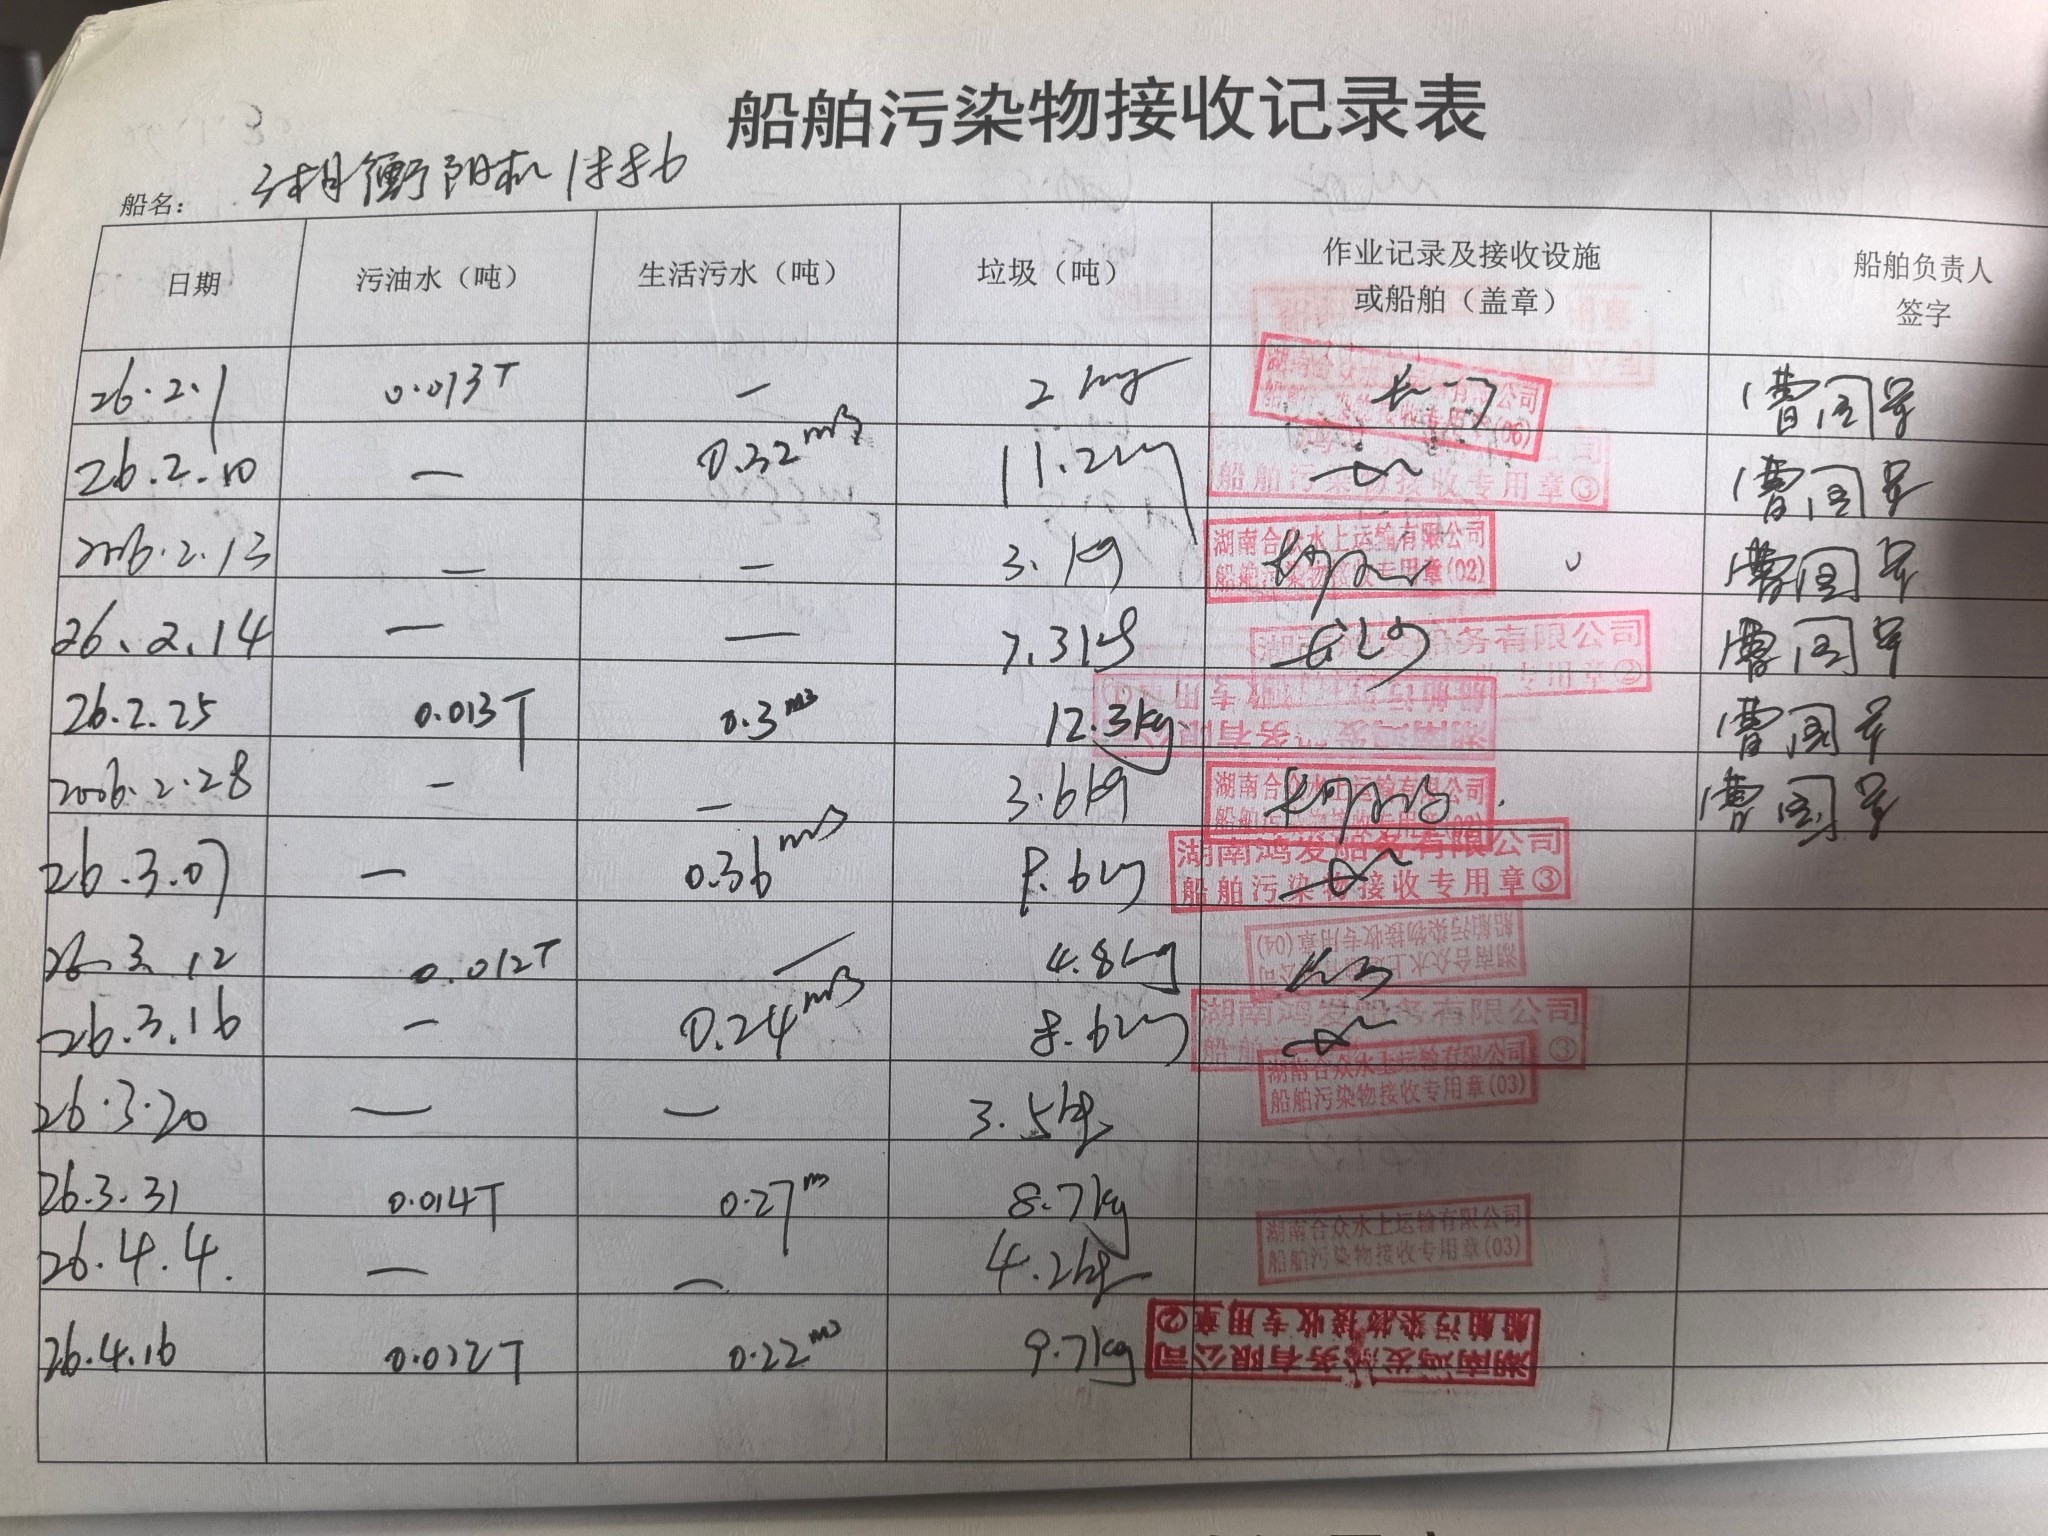 船舶污染物接收记录表
船名： 湘衡阳机
日期 污油水（吨） 生活污水（吨） 垃圾（吨） 作业记录及接收设施或船舶（盖章） 船舶负责人签字
26.2.1 0.013T — 2kg 湖南合众水上运输有限公司 船舶污染物接收专用章(06)
26.2.10 — 0.32m3 11.2kg 船舶污染物接收专用章③
2026.2.13 — — 3.1kg 湖南合众水上运输有限公司 船舶污染物接收专用章(02)
26.2.14 — — 7.3kg 湖南鸿发船务有限公司 专用章②
26.2.25 0.013T 0.3m3 12.3kg 湖南鸿发船务有限公司
2026.2.28 — — 3.6kg 湖南合众水上运输有限公司 船舶污染物接收专用章
26.3.07 — 0.36m3 8.6kg 湖南鸿发船务有限公司 船舶污染物接收专用章③
26.3.12 0.012T — 4.8kg 湖南合众水上运输有限公司 船舶污染物接收专用章(04)
26.3.16 — 0.24m3 8.6kg 湖南鸿发船务有限公司 ③
26.3.20 — — 3.5kg 湖南合众水上运输有限公司 船舶污染物接收专用章(03)
26.3.31 0.014T 0.27m 8.7kg
26.4.4. — — 4.2kg 湖南合众水上运输有限公司 船舶污染物接收专用章(03)
26.4.16 0.012T 0.22m3 9.7kg 湖南鸿发船务有限公司 船舶污染物接收专用章②